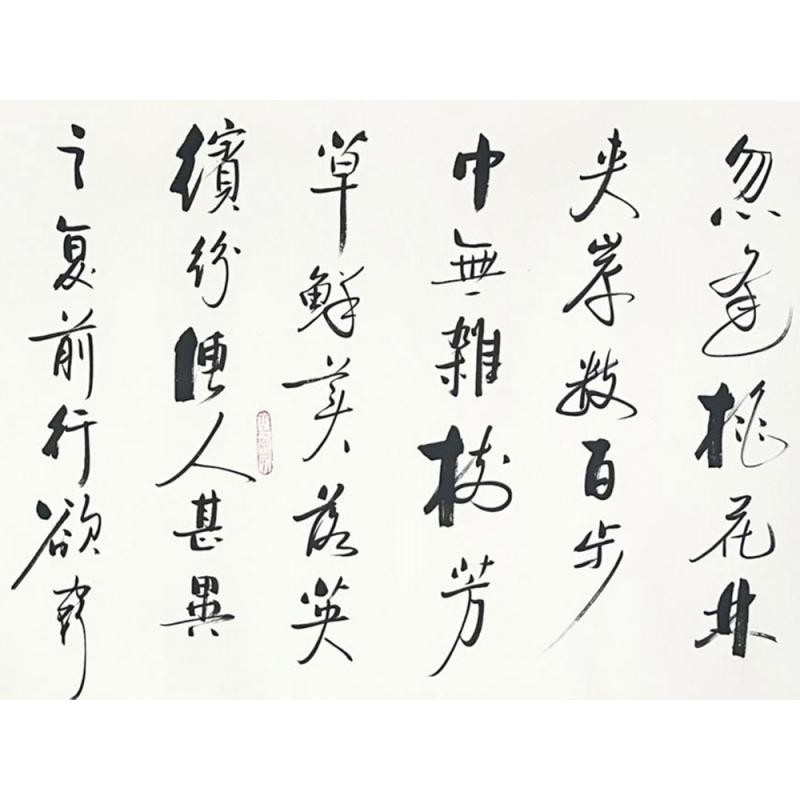 忽逢桃花林
夹岸数百步
中無雜树芳
草鮮美落英
繽紛漁人甚異
之复前行欲窮